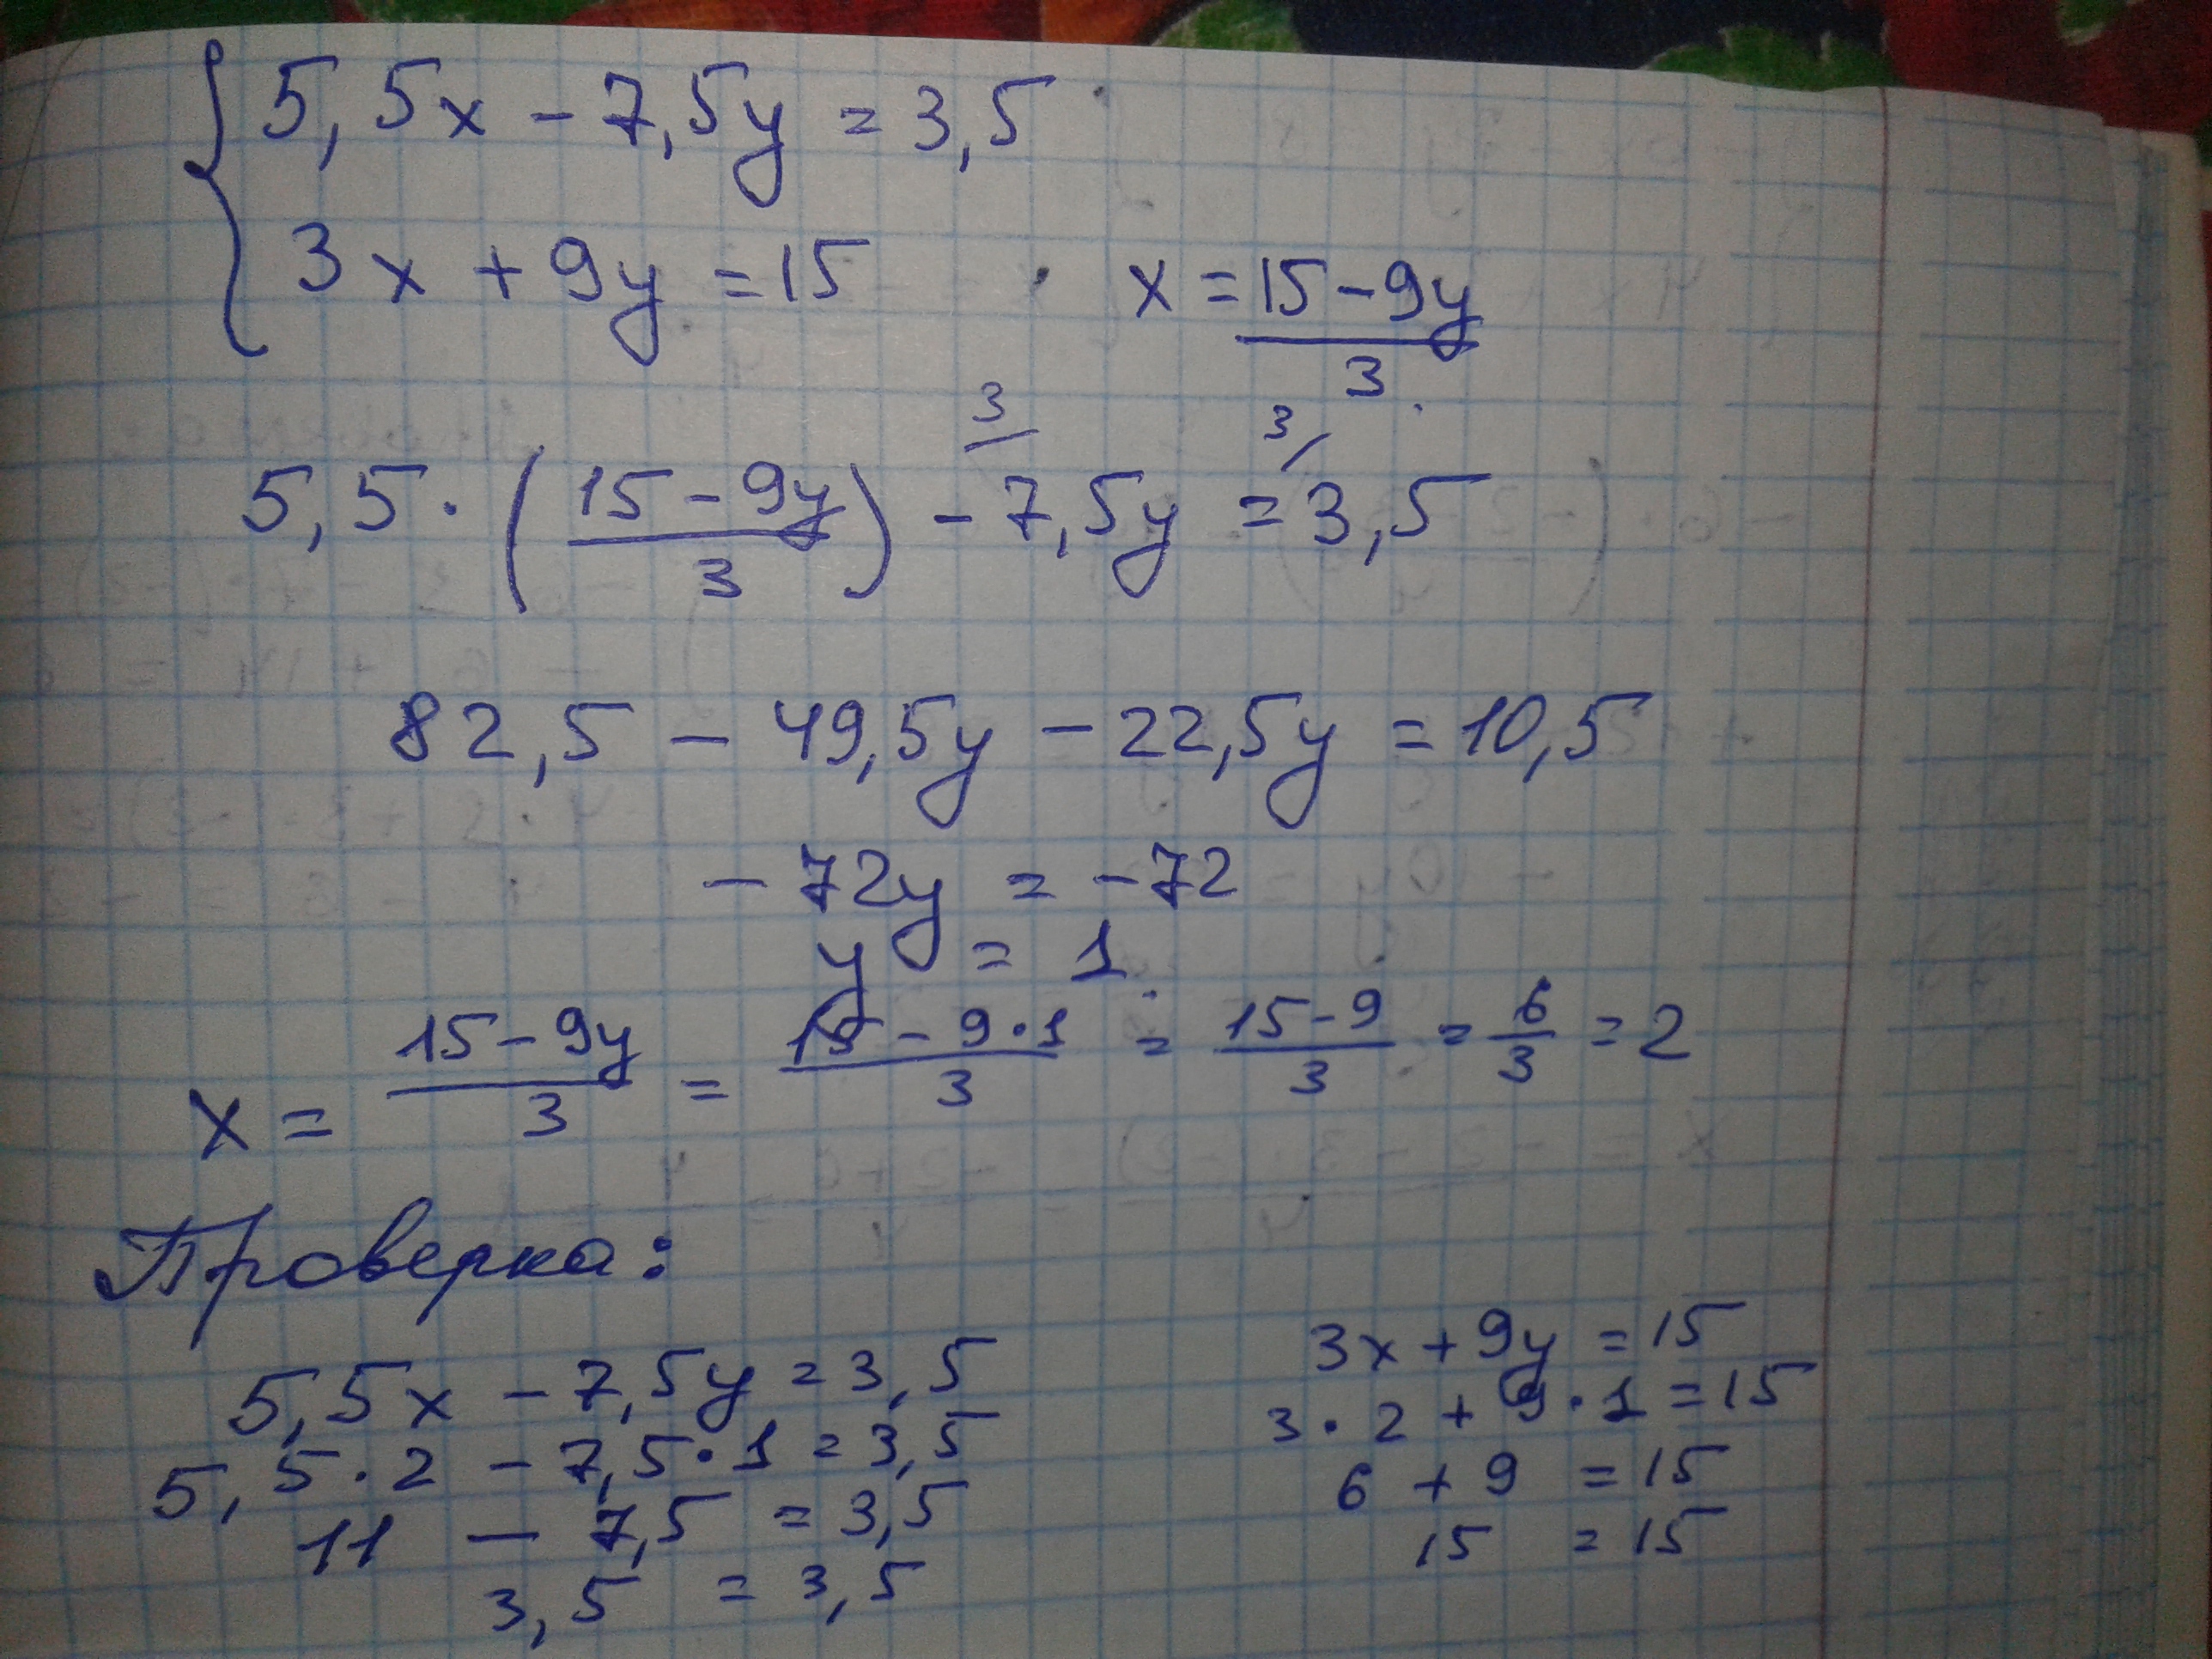 { 5,5x - 7,5y = 3,5
3x + 9y = 15 x = (15 - 9y)/3
5,5 · ((15 - 9y)/3) - 3/ 7,5y = 3/ 3,5
82,5 - 49,5y - 22,5y = 10,5
- 72y = - 72
y = 1
x = (15 - 9y)/3 = (15 - 9·1)/3 = (15 - 9)/3 = 6/3 = 2
Проверка:
5,5x - 7,5y = 3,5
5,5·2 - 7,5·1 = 3,5
11 - 7,5 = 3,5
3,5 = 3,5
3x + 9y = 15
3·2 + 9·1 = 15
6 + 9 = 15
15 = 15